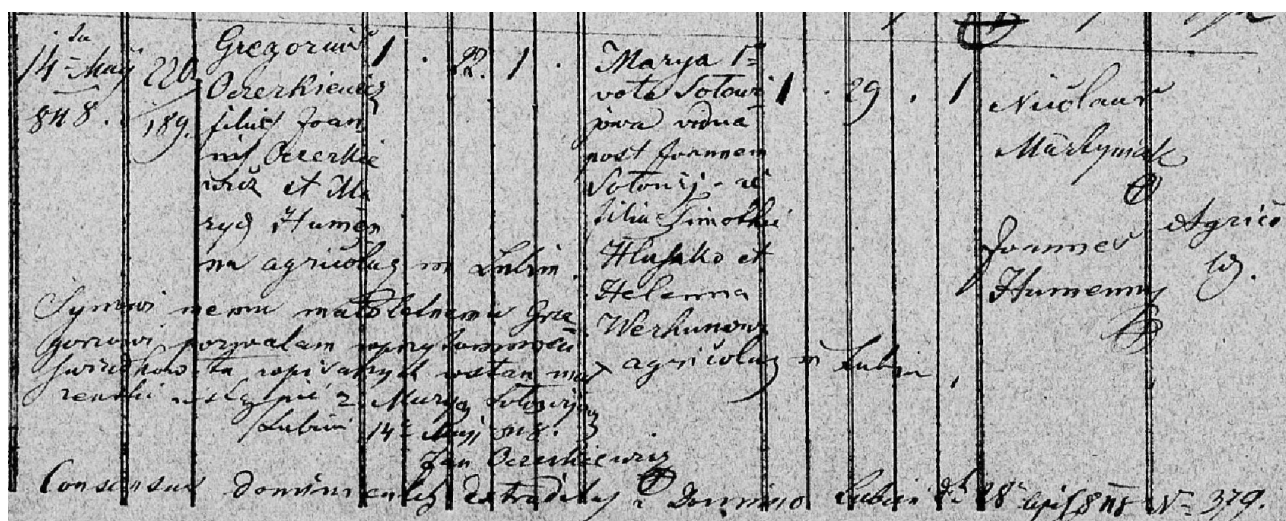 14ta Maij
8118.
220
189.
Gregorius
Oczerkiewicz
filius Joan
nis Oczerkie
wicz et Ma
ryæ Humen
na agricolæ in Lubin.
1 . 22. 1 .
Marya 1o
voto Sołowi
jowa vidua
post Joannem
Sołowij
filia Timothei
Hluszko et
Helenna
Werhunowa
agricolæ in Lubin
1 . 29 . 1
Nicolaus
Martyniak
Joannes
Humenny
Agrico
læ.
Synowi memu małoletnemu Grze
gorzowi pozwalam w przytomności
świadków tu wpisanych w stan mał
żenski wstąpić z Maryą Sołowijową
Lubin 14ta Maij 8118.
Jan Oczerkiewicz
Consensus dominicalis extraditus a Dominio Lubin 28 8118 No 379.